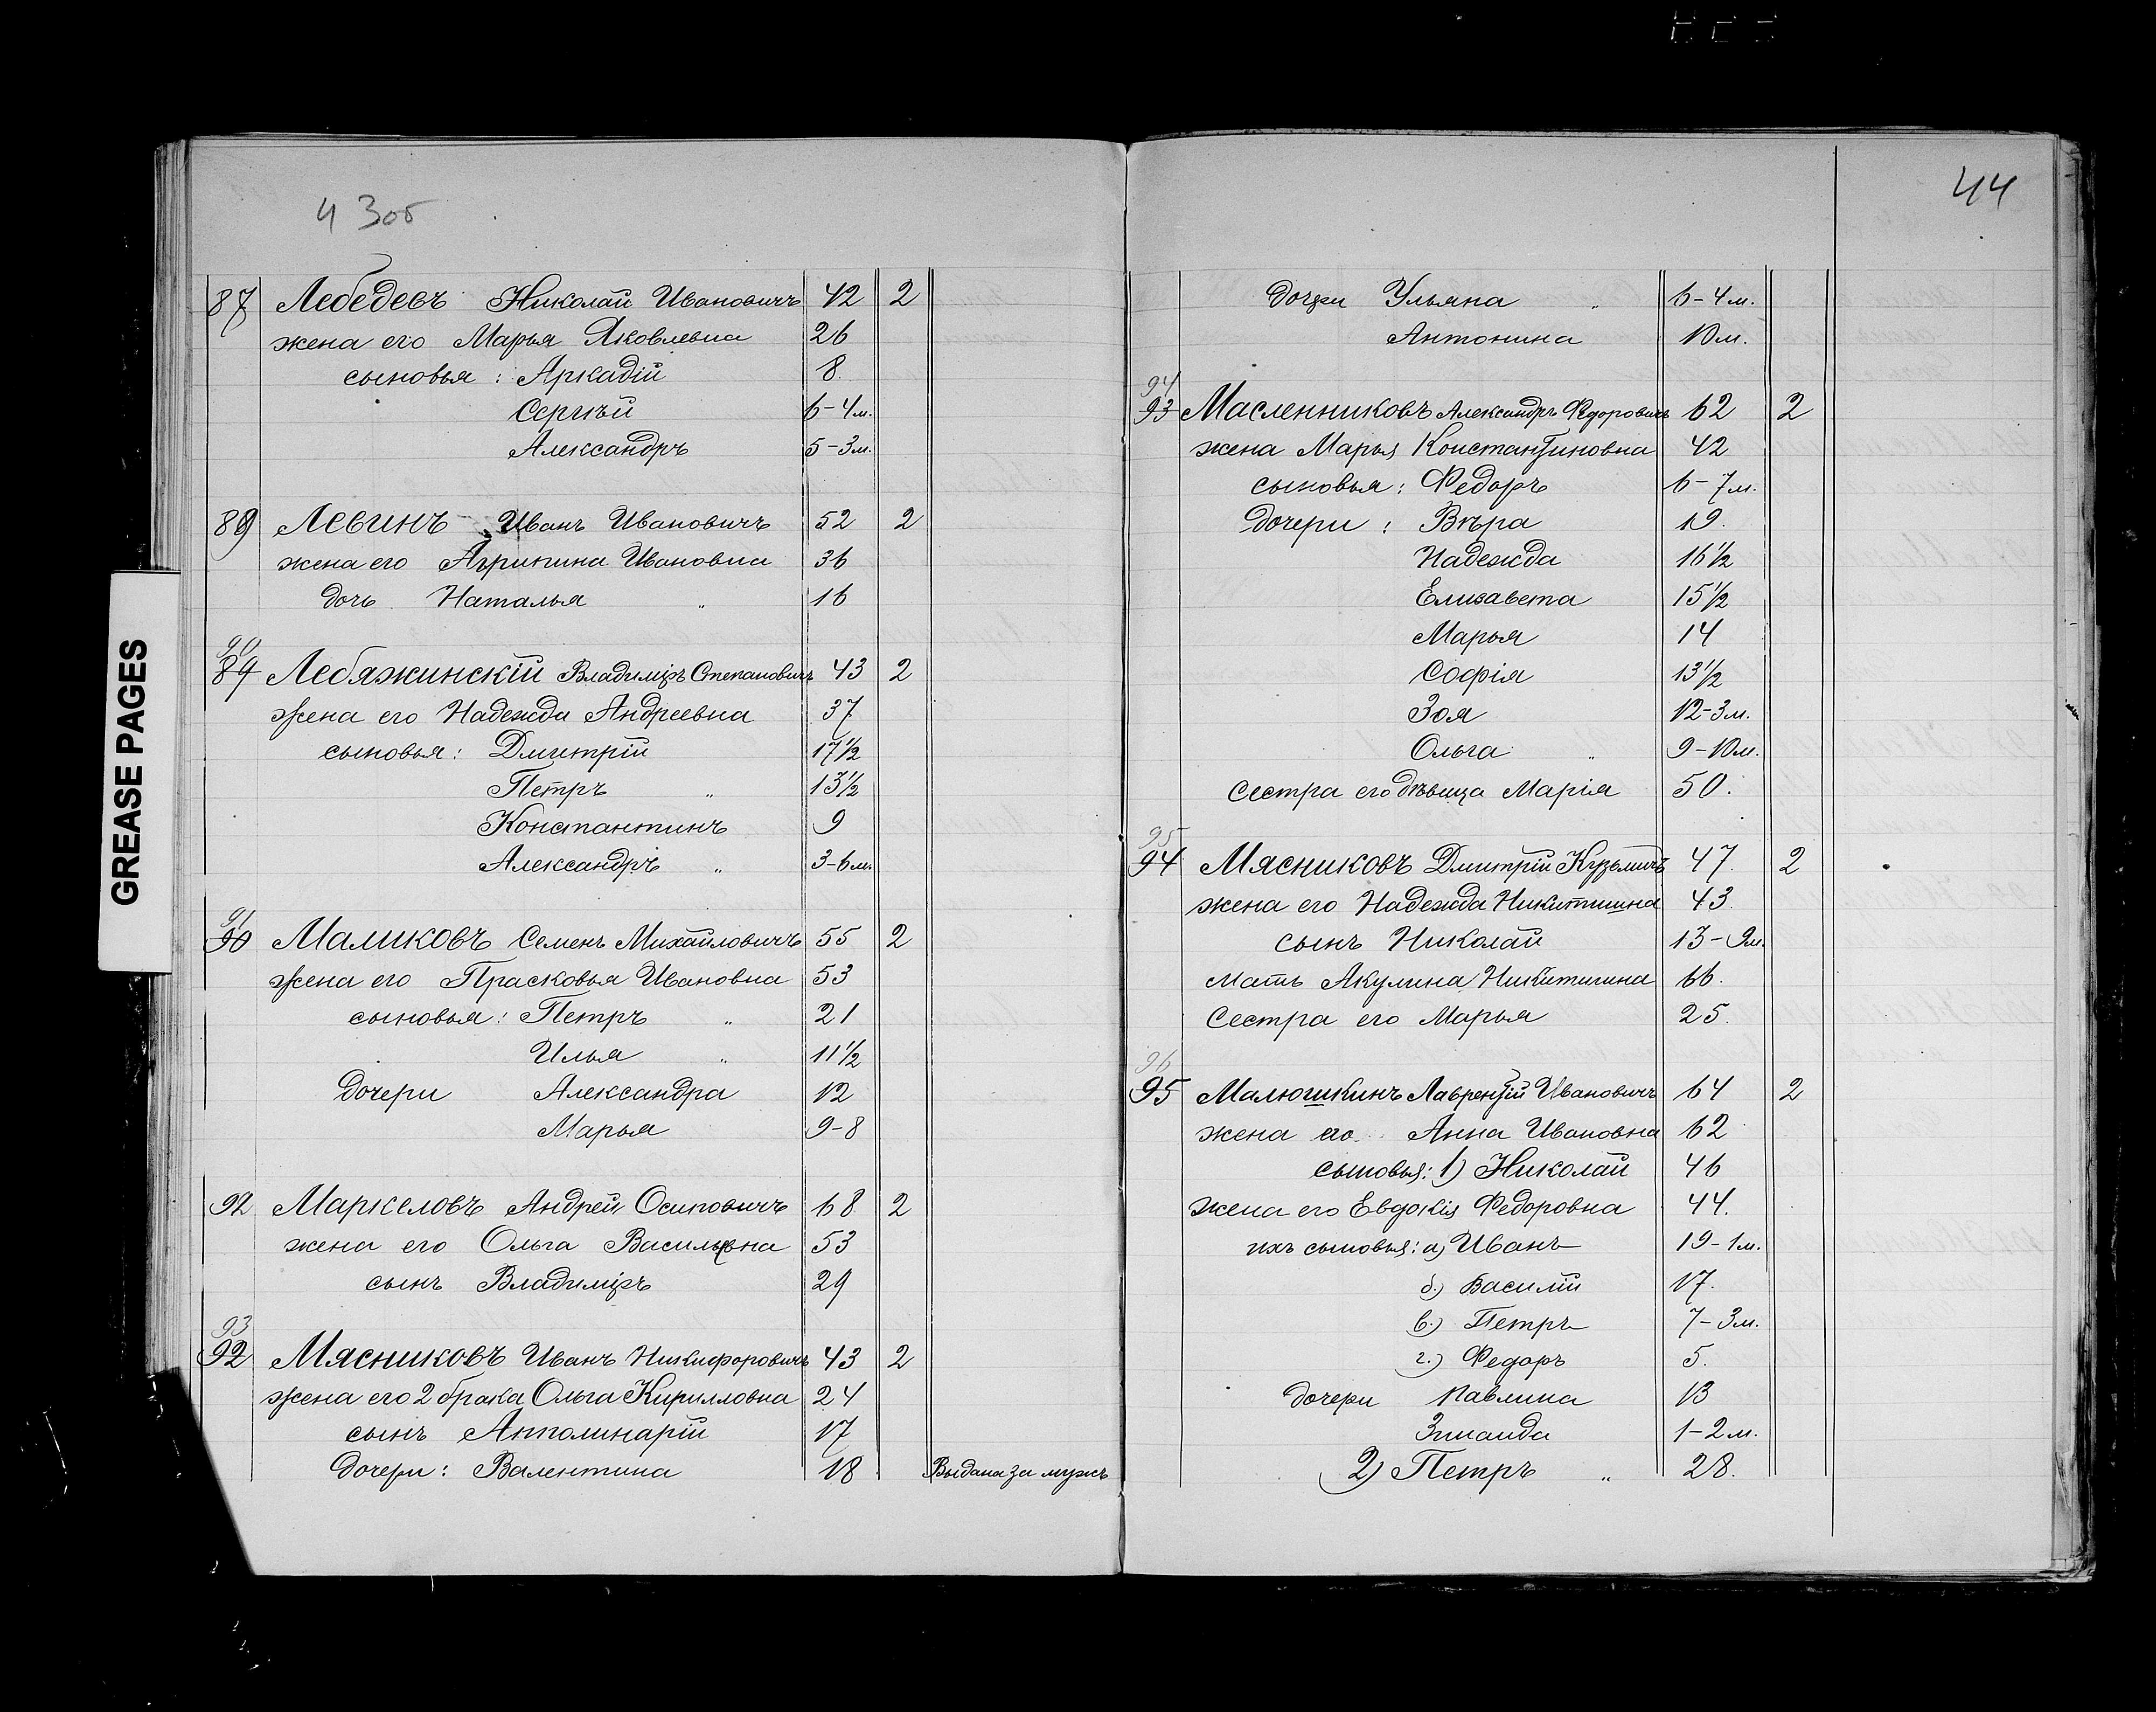 43об
87 Лебедевъ Николай Ивановичъ 42 2
жена его Марья Яковлевна 26
сыновья: Аркадій 8
Сергѣй 6-4м.
Александръ 5-3м.
89 Левинъ Иванъ Ивановичъ 52 2
жена его Агрипина Ивановна 36
дочь Наталья " 16
90
89 Лебяжинскій Владиміръ Степановичъ 43 2
жена его Надежда Андреевна 37
сыновья: Дмитрій 17½
Петръ " 13½
Константинъ 9
Александръ " 3-6м.
91
90 Маликовъ Семенъ Михайловичъ 55 2
жена его Прасковья Ивановна 53
сыновья: Петръ " 21
Илья " 11½
дочери Александра 12
Марья 9-8
92 Маркеловъ Андрей Осиповичъ 68 2
жена его Ольга Васильевна 53
сынъ Владиміръ 29
93
92 Мясниковъ Иванъ Никифоровичъ 43 2
жена его 2 брака Ольга Кирилловна 24
сынъ Апполинарій 17
дочери: Валентина 18 Выдана за мужъ
44
дочери Ульяна " 6-4м.
Антонина 10м.
94
93 Масленниковъ Александръ Федоровичъ 62 2
жена Марья Константиновна 42
сыновья: Федоръ 6-7м.
дочери: Вѣра 19.
Надежда 16½
Елизавета 15½
Марья 14
Софія 13½
Зоя 12-3м.
Ольга " 9-10м.
сестра его дѣвица Марія 50.
95
94 Мясниковъ Дмитрій Кузьмичъ 47 2
жена его Надежда Никитишна 43
сынъ Николай 13-9м.
мать Акулина Никитична 66.
Сестра его Марья 25.
96
95 Малюшкинъ Лаврентій Ивановичъ 64 2
жена его Анна Ивановна 62
сыновья: 1) Николай 46
жена его Евдокія Федоровна 44.
ихъ сыновья: а) Иванъ 19-1м.
б.) Василій 17.
в.) Петръ 7-3м.
г.) Федоръ 5.
дочери Павлина 13
Зинаида 1-2м.
2) Петръ " 28.
GREASE PAGES